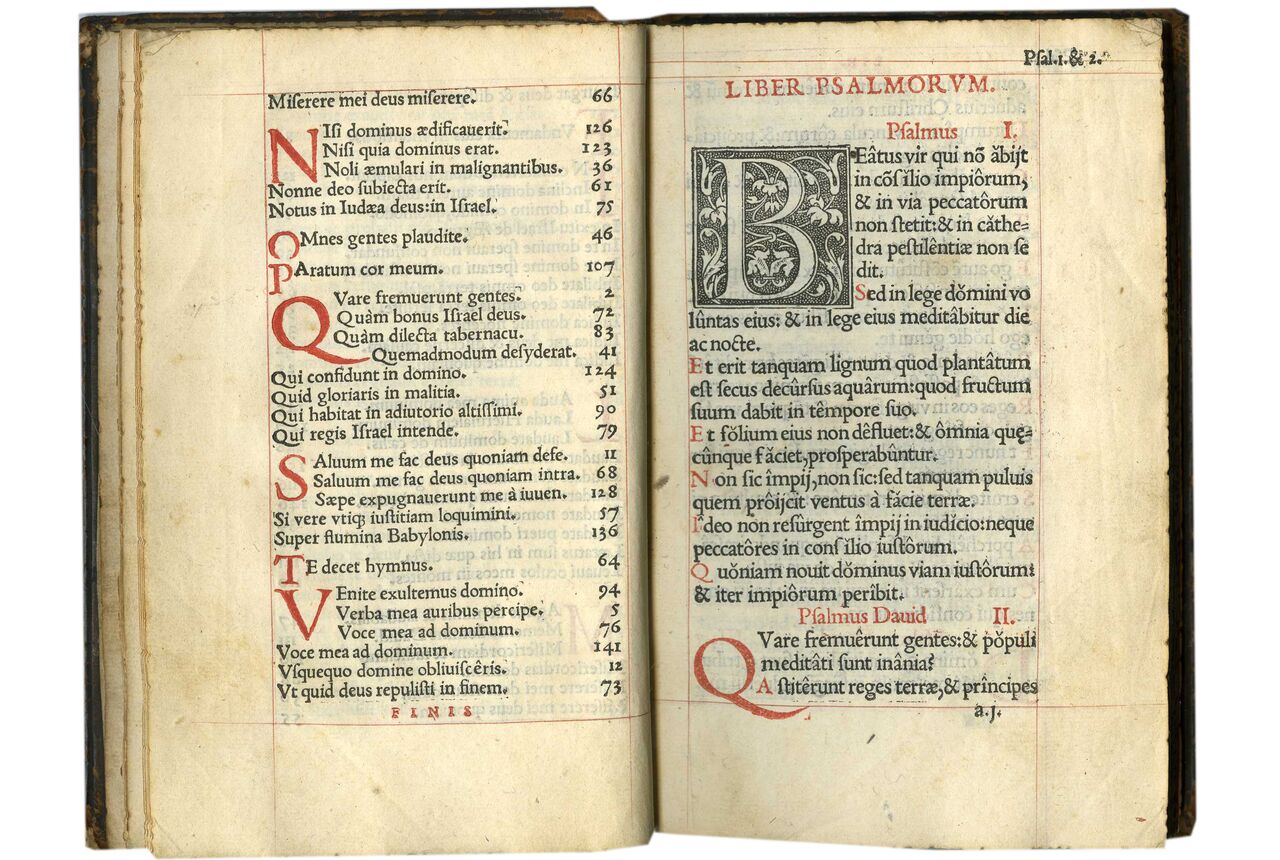 Miſerere mei deus miſerere.᷎ 66
NIſi dominus ædificauerit. 126
Niſi quia dominus erat. 123
Noli æmulari in malignantibus. 36
Nonne deo ſubiecta erit. 61
Notus in Iudæa deus:in Iſrael. 75
OMnes gentes plaudite. 46
PAratum cor meum. 107
QVare fremuerunt gentes. 2
Quàm bonus Iſrael deus. 72
Quàm dilecta tabernacu. 83
Quemadmodum deſyderat. 41
Qui confidunt in domino. 124
Quid gloriaris in malitia. 51
Qui habitat in adiutorio altiſſimi. 90
Qui regis Iſrael intende. 79
SAluum me fac deus quoniam defe. 11
Saluum me fac deus quoniam intra. 68
Sæpe expugnauerunt me à iuuen. 128
Si vere vtiqꝫ iuſtitiam loquimini. 57
Super flumina Babylonis. 136
TE decet hymnus. 64
VEnite exultemus domino. 94
Verba mea auribus percipe. 5
Voce mea ad dominum. 76
Voce mea ad dominum. 141
Vſquequo domine obliuiſcêris. 12
Vt quid deus repuliſti in finem. 73
FINIS
Pſal.1.& 2.
LIBER PSALMORVM.
Pſalmus I.
BEâtus vir qui nõ ăbijt
in cõſilio impiôrum,
& in via peccatôrum
non ſtetit:& in câthe=
dra peſtilêntiæ non ſe
dit.
Sed in lege dŏmini vo
lûntas eius: & in lege eius meditâbitur die
ac nocte.
Et erit tanquam lignum quod plantâtum
eſt ſecus decûrſus aquârum:quod fructum
ſuum dabit in têmpore ſuo.
Et fŏlium eius non dêfluet:& ômnia quę=
cûnque făciet,proſperabûntur.
Non ſic împij,non ſic:ſed tanquam puluis
quem prôijcit ventus à fácie terræ.
Ideo non reſûrgent împij in iudício:neque
peccatôres in conſilio iuſtôrum.
Quŏniam nouit dŏminus viam iuſtôrum:
& iter impiôrum perîbit.
Pſalmus Dauid II.
QVare fremuêrunt gentes:& pŏpuli
meditâti ſunt inânia?
Aſtitêrunt reges terræ,& prîncipes
a.j.